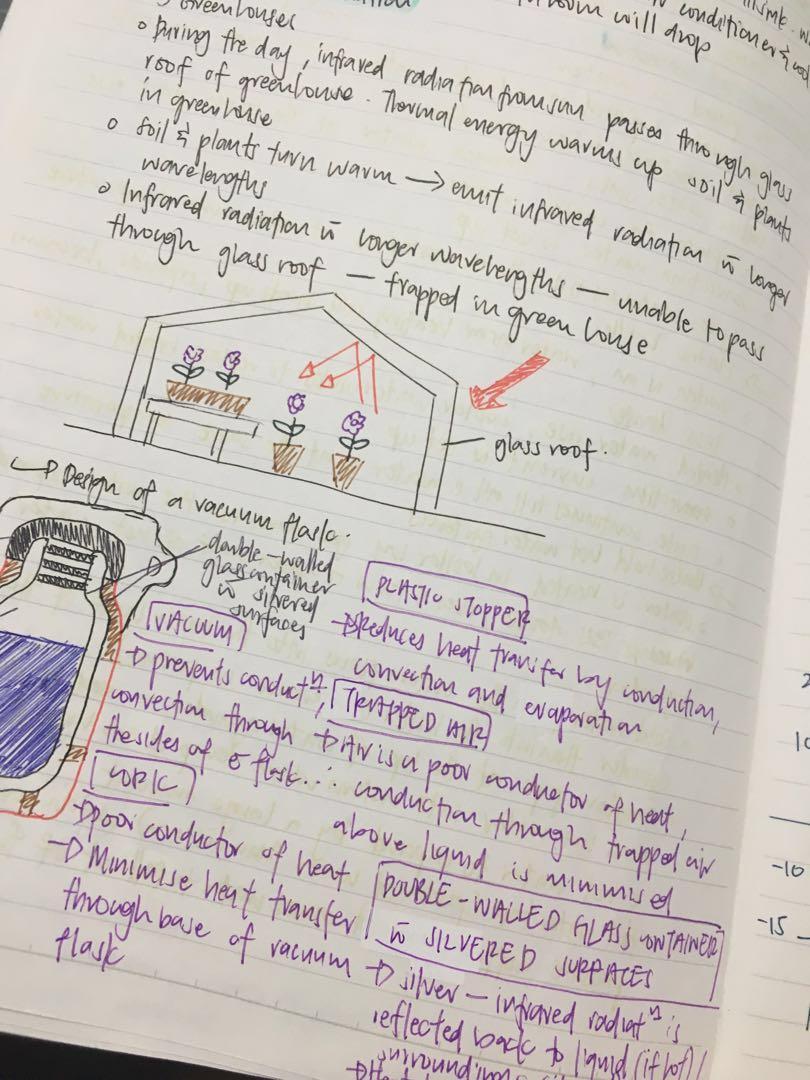 conditioner &
room will drop
Greenhouses
◦ During the day, infrared radiation from sun passes through glass
roof of greenhouse. Thermal energy warms up soil & plants
in greenhouse
◦ Soil & plants turn warm → emit infrared radiation w̄ longer
wavelengths
◦ Infrared radiation w̄ longer wavelengths — unable to pass
through glass roof — trapped in green house
glass roof.
↳ Design of a vacuum flask.
double-walled
glass container
w̄ silvered
surfaces
VACUUM
→ prevents conductⁿ,
convection through
the sides of flask.
CORK
→ poor conductor of heat
→ Minimise heat transfer
through base of vacuum
flask
PLASTIC STOPPER
→ Reduces heat transfer by conduction,
convection and evaporation
TRAPPED AIR
→ Air is a poor conductor of heat,
∴ conduction through trapped air
above liquid is minimised
DOUBLE-WALLED GLASS CONTAINER
w̄ SILVERED SURFACES
→ silver — infrared radiatⁿ is
reflected back to liquid (if hot) /
surroundings
-10
-15